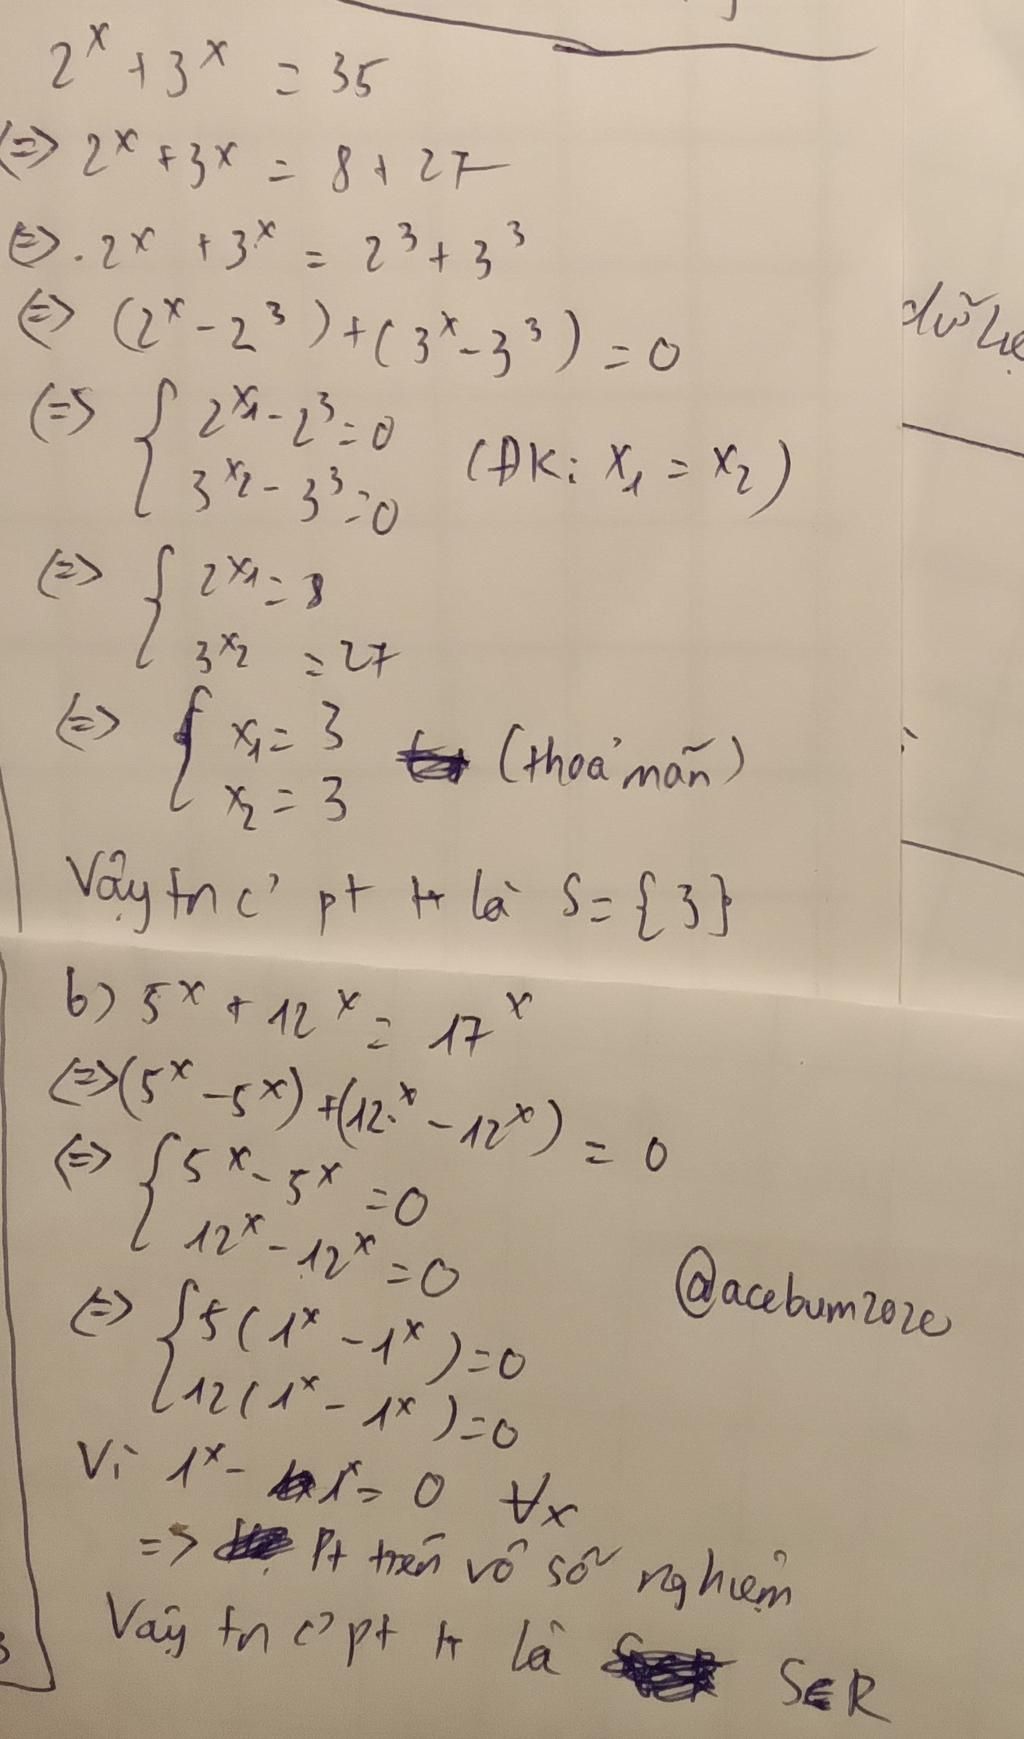 2^x + 3^x = 35
(=> 2^x + 3^x = 8 + 27
(=>. 2^x + 3^x = 2^3 + 3^3
(=> (2^x - 2^3) + (3^x - 3^3) = 0
(=> { 2^x1 - 2^3 = 0
3^x2 - 3^3 = 0 (ĐK: x1 = x2)
(=> { 2^x1 = 8
3^x2 = 27
(=> { x1 = 3
x2 = 3 (thoả mãn)
Vậy tn c' pt tr là S = {3}
b) 5^x + 12^x = 17^x
(=> (5^x - 5^x) + (12.^x - 12^x) = 0
(=> { 5^x - 5^x = 0
12^x - 12^x = 0
@acebum2020
(=> { 5(1^x - 1^x) = 0
12(1^x - 1^x) = 0
Vì 1^x - 1^x = 0 ∀x
=> Pt trên vô số nghiệm
Vậy tn c' pt tr là S∈R